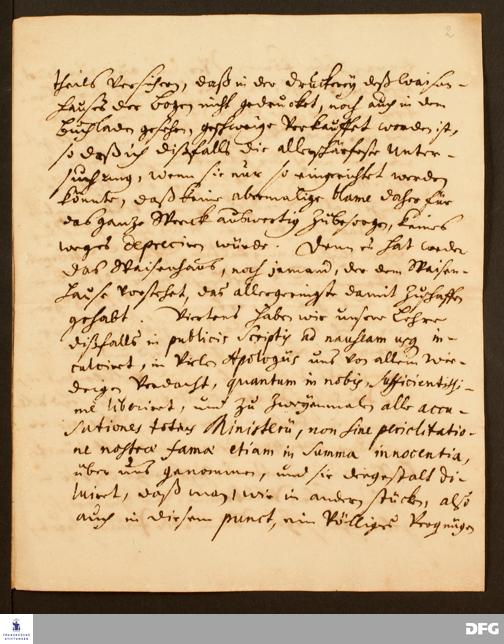 2
theils versichern, daß in der Druckerey deß Waisen-
hauses der bogen nicht gedrucket, noch auch in dem
Buchladen gesehen, geschweige verkauffet worden ist,
so daß ich dißfalls die allerschärfeste Unter-
suchung, wenn sie nur so eingerichtet werden
könnte, daß keine abermalige blame daher für
das ganze Werck außwertig zubesorgen, keines
weges depreciren würde. Denn es hat weder
das Waisenhaus, noch jemand, der dem Waisen-
hause vorstehet, das allergeringste damit zuschaffen
gehabt. Viertens haben wir unsere Lehre
dißfalls in publicis scriptis ad nauseam usq in-
culciret, in vielen Apologiis uns von allem wie-
drigen Verdacht, quantum in nobis, sufficientissi-
me liberiret, und zu zweyenmalen alle accu-
sationes totius Ministerii, non sine periclitatio-
ne nostrae famae etiam in summa innocentia,
über uns genommen, und sie dergestalt di-
luiret, daß man, wie in andern stücken, also
auch in diesem punct, ein völliges Vergnügen
FRANCKESCHE
STIFTUNGEN
DFG